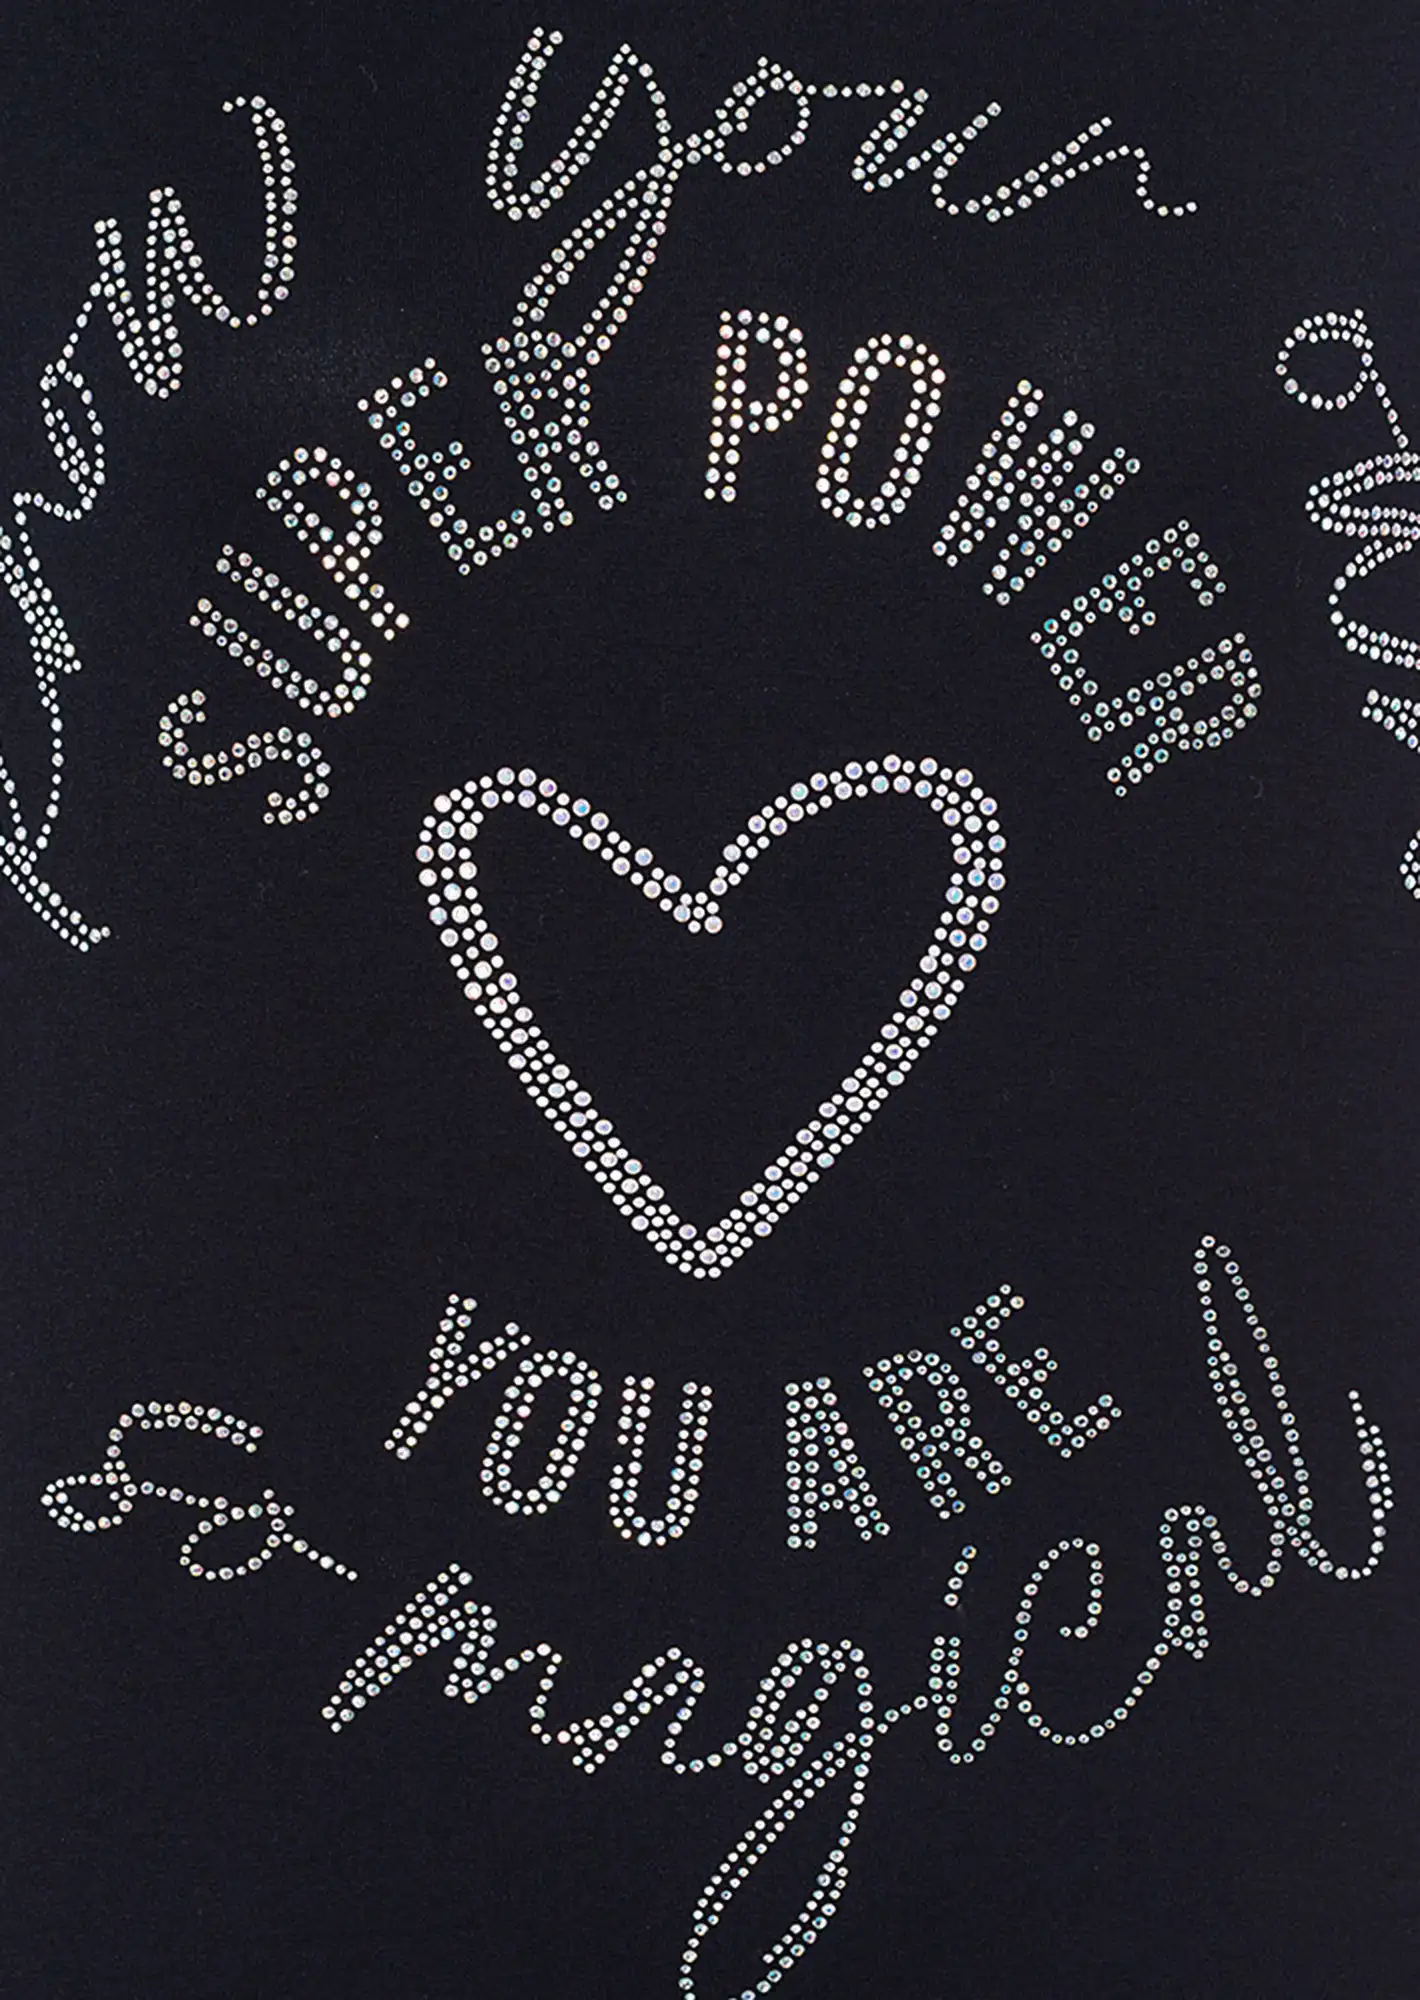 your
SUPER POWER
YOU ARE
So magical